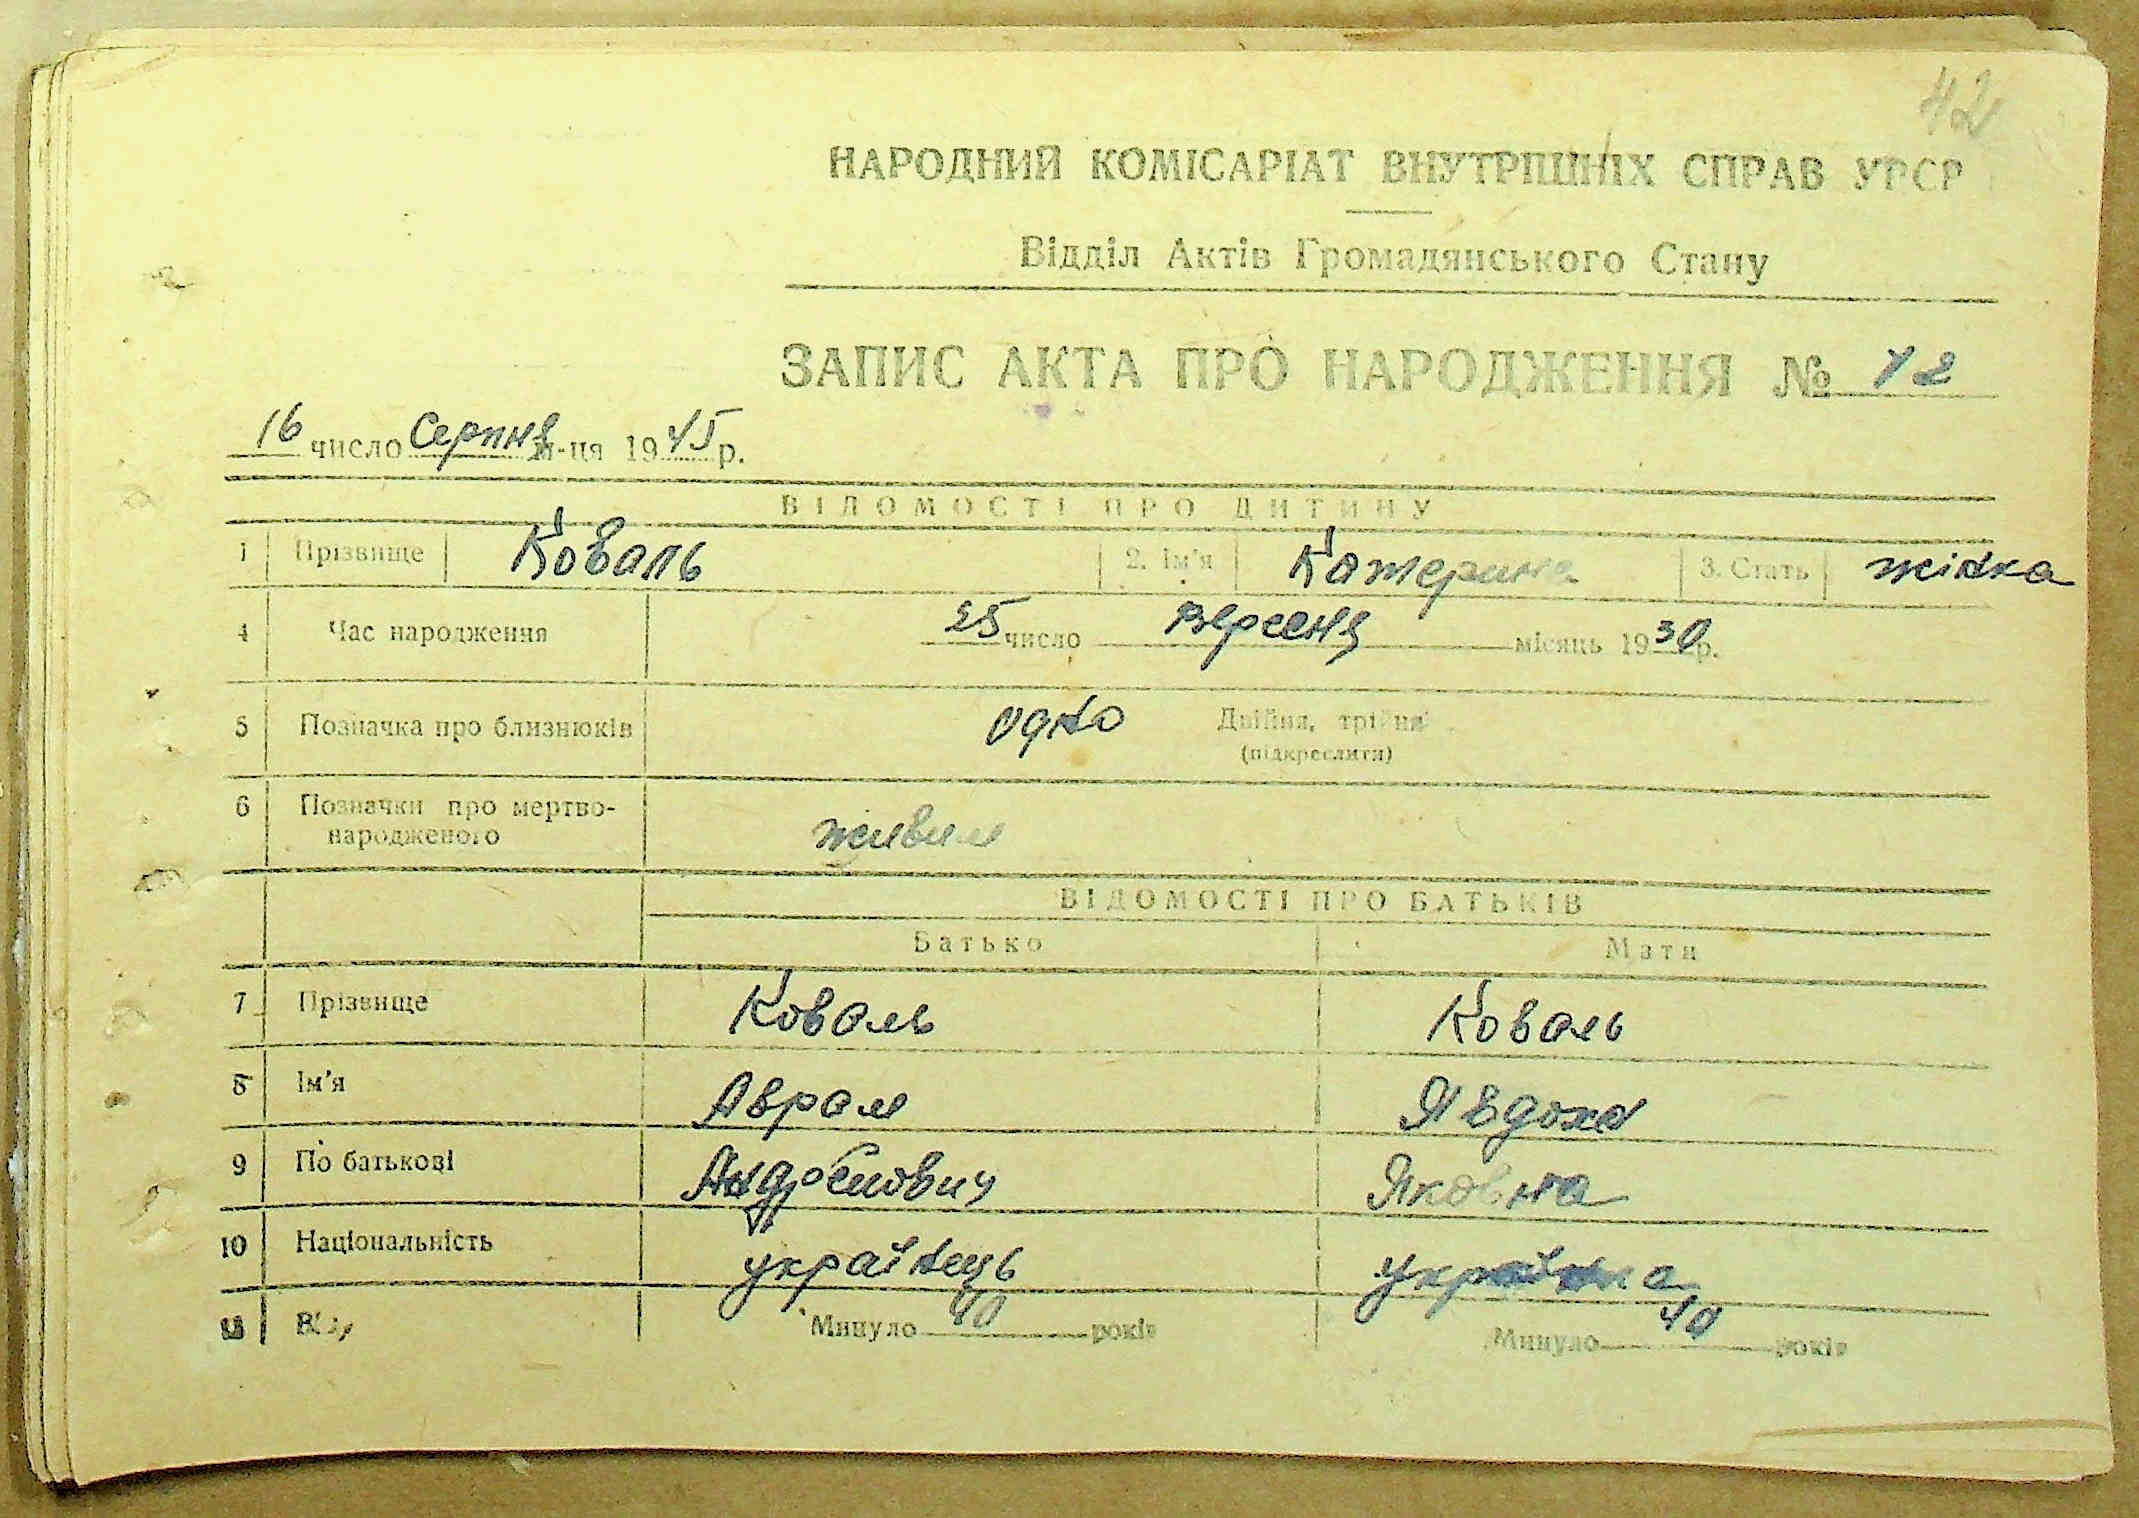 42
НАРОДНИЙ КОМІСАРІАТ ВНУТРІШНІХ СПРАВ УРСР
Відділ Актів Громадянського Стану
ЗАПИС АКТА ПРО НАРОДЖЕННЯ № 42
16 число Серпня м-ця 1945 р.
ВІДОМОСТІ ПРО ДИТИНУ
1 Прізвище Коваль 2. Ім'я Катерина 3. Стать жінка
4 Час народження 25 число вересня місяць 1930 р.
5 Позначка про близнюків одно Двійня, трійня
(підкреслити)
6 Позначки про мертво-
народженого живим
ВІДОМОСТІ ПРО БАТЬКІВ
Батько Мати
7 Прізвище Коваль Коваль
8 Ім'я Аврам Явдоха
9 По батькові Андрейович Яковна
10 Національність українець українка
11 Вік Минуло 40 років Минуло 40 років